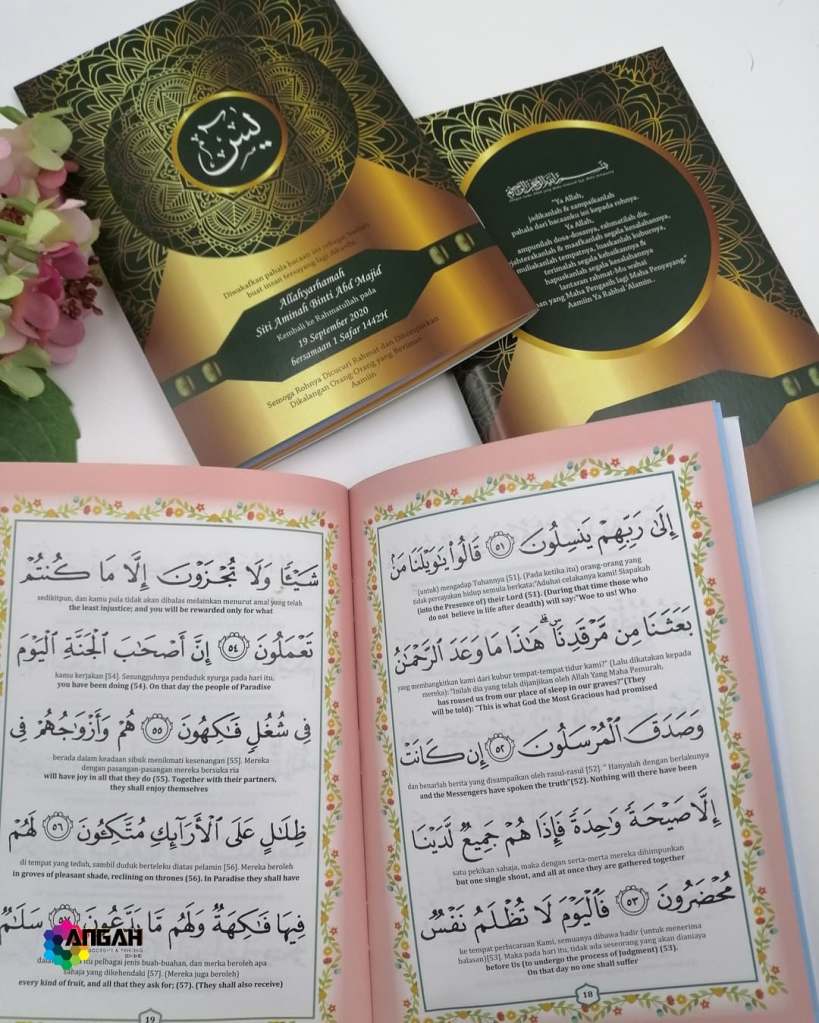 يس
Diwakafkan pahala bacaan ini sebagai hadiah
buat insan tersayang lagi dikasihi
Allahyarhamah
Siti Aminah Binti Abd Majid
Kembali ke Rahmatullah pada
19 September 2020
bersamaan 1 Safar 1442H
Semoga Rohnya Dicucuri Rahmat dan Ditempatkan
Dikalangan Orang-Orang yang Beriman
Aamiin
"Ya Allah,
jadikanlah & sampaikanlah
pahala dari bacaanku ini kepada rohnya.
Ya Allah,
ampunilah dosa-dosanya, rahmatilah dia.
sejahterakanlah & maafkanlah segala kesalahannya,
muliakanlah tempatnya, luaskanlah kuburnya,
terimalah segala kebaikannya &
hapuskanlah segala kesalahannya
lantaran rahmat-Mu wahai
Tuhan yang Maha Pengasih lagi Maha Penyayang."
Aamiin Ya Rabbal 'Alamin.
إِلَىٰ رَبِّهِمْ يَنسِلُونَ ٥١ قَالُوا۟ يَٰوَيْلَنَا مَنۢ
(untuk) mengadap Tuhannya [51]. (Pada ketika itu) orang-orang yang
tidak percayakan hidup semula berkata;"Aduhai celakanya kami! Siapakah
(into the Presence of) their Lord (51). (During that time those who
do not believe in life after deadth) will say:"Woe to us! Who
بَعَثَنَا مِن مَّرْقَدِنَا ۜ ۗ هَٰذَا مَا وَعَدَ الرَّحْمَٰنُ
yang membangkitkan kami dari kubur tempat-tempat tidur kami?" (Lalu dikatakan kepada
mereka): "Inilah dia yang telah dijanjikan oleh Allah Yang Maha Pemurah,
has roused us from our place of sleep in our graves?"(They
will be told): "This is what God the Most Gracious had promised
وَصَدَقَ الْمُرْسَلُونَ ٥٢ إِن كَانَتْ
dan benarlah berita yang disampaikan oleh rasul-rasul [52]. " Hanyalah dengan berlakunya
and the Messengers have spoken the truth"(52). Nothing will there have been
إِلَّا صَيْحَةً وَٰحِدَةً فَإِذَا هُمْ جَمِيعٌ لَّدَيْنَا
satu pekikan sahaja, maka dengan serta-merta mereka dihimpunkan
but one single shout, and all at once they are gathered together
مُحْضَرُونَ ٥٣ فَالْيَوْمَ لَا تُظْلَمُ نَفْسٌ
ke tempat perbicaraan Kami, semuanya dibawa hadir (untuk menerima
balasan)[53]. Maka pada hari itu, tidak ada seseorang yang akan dianiaya
before Us (to undergo the process of Judgment) (53).
On that day no one shall suffer
18
شَيْـًٔا وَلَا تُجْزَوْنَ إِلَّا مَا كُنتُمْ
sedikitpun, dan kamu pula tidak akan dibalas melainkan menurut amal yang telah
the least injustice; and you will be rewarded only for what
تَعْمَلُونَ ٥٤ إِنَّ أَصْحَٰبَ الْجَنَّةِ الْيَوْمَ
kamu kerjakan [54]. Sesungguhnya penduduk syurga pada hari itu,
you have been doing (54). On that day the people of Paradise
فِي شُغُلٍ فَٰكِهُونَ ٥٥ هُمْ وَأَزْوَٰجُهُمْ فِي
berada dalam keadaan sibuk menikmati kesenangan [55]. Mereka
dengan pasangan-pasangan mereka bersuka ria
will have joy in all that they do (55). Together with their partners,
they shall enjoy themselves
ظِلَٰلٍ عَلَى الْأَرَآئِكِ مُتَّكِـُٔونَ ٥٦ لَهُمْ
di tempat yang teduh, sambil duduk berteleku diatas pelamin [56]. Mereka beroleh
in groves of pleasant shade, reclining on thrones (56). In Paradise they shall have
فِيهَا فَٰكِهَةٌ وَلَهُم مَّا يَدَّعُونَ ٥٧ سَلَٰمٌ
itu pelbagai jenis buah-buahan, dan merka beroleh apa
sahaja yang dikehendaki [57]. (Mereka juga beroleh)
every kind of fruit, and all that they ask for; (57). (They shall also receive)
19
ANGAH